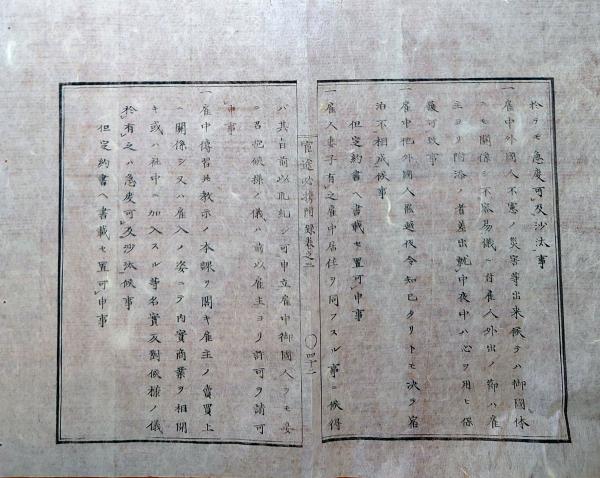 於テモ急度可及沙汰事
一雇中外國人不慮ノ災害等出来候テハ御國体
ヘモ關係シ不容易儀ニ付雇人外出ノ節ハ雇
主ヨリ附添ノ者差出就中夜中ハ心ヲ用ヒ保
護可致事
一雇中他外國人縱越夜令知己タリトモ決テ宿
泊不相成候事
但定約書ヘ書載セ置可申事
一雇人妻子有之雇中居住ヲ同フスル事ニ候得
官途必携門録巻之二
〇四十二
ハ其自前以取糺シ可申立雇中御國人ヲモ妄
ニ召抱候様ノ儀ハ前以雇主ヨリ許可ヲ請可
申事
一雇中傳習或教示ノ本課ヲ閣キ雇主ノ賣買上
ヘ關係シ又ハ雇入ノ姿ニテ内實商業ヲ相開
キ或ハ社中ニ加入スル等名實反對候様ノ儀
於有之ハ急度可及沙汰候事
但定約書ヘ書載セ置可申事